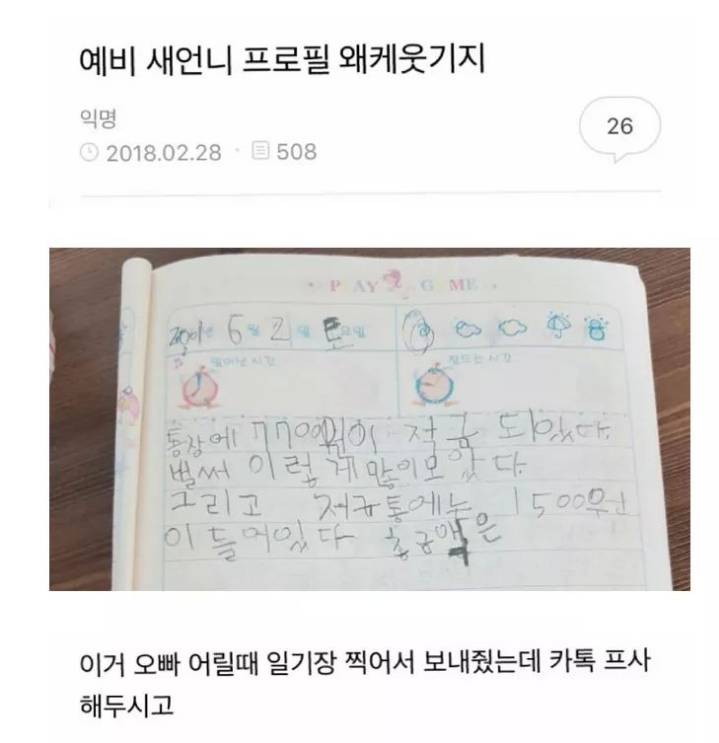 예비 새언니 프로필 왜케웃기지
익명
26
2018.02.28 508
PLAY GAME
6월 2일 토요일
일어난 시간
잠드는 시간
통장에 7700원이 저금 되있다.
벌써 이렇게많이모았다.
그리고 저금통에는 1500원
이 들어있다 총금액은
이거 오빠 어릴때 일기장 찍어서 보내줬는데 카톡 프사
해두시고